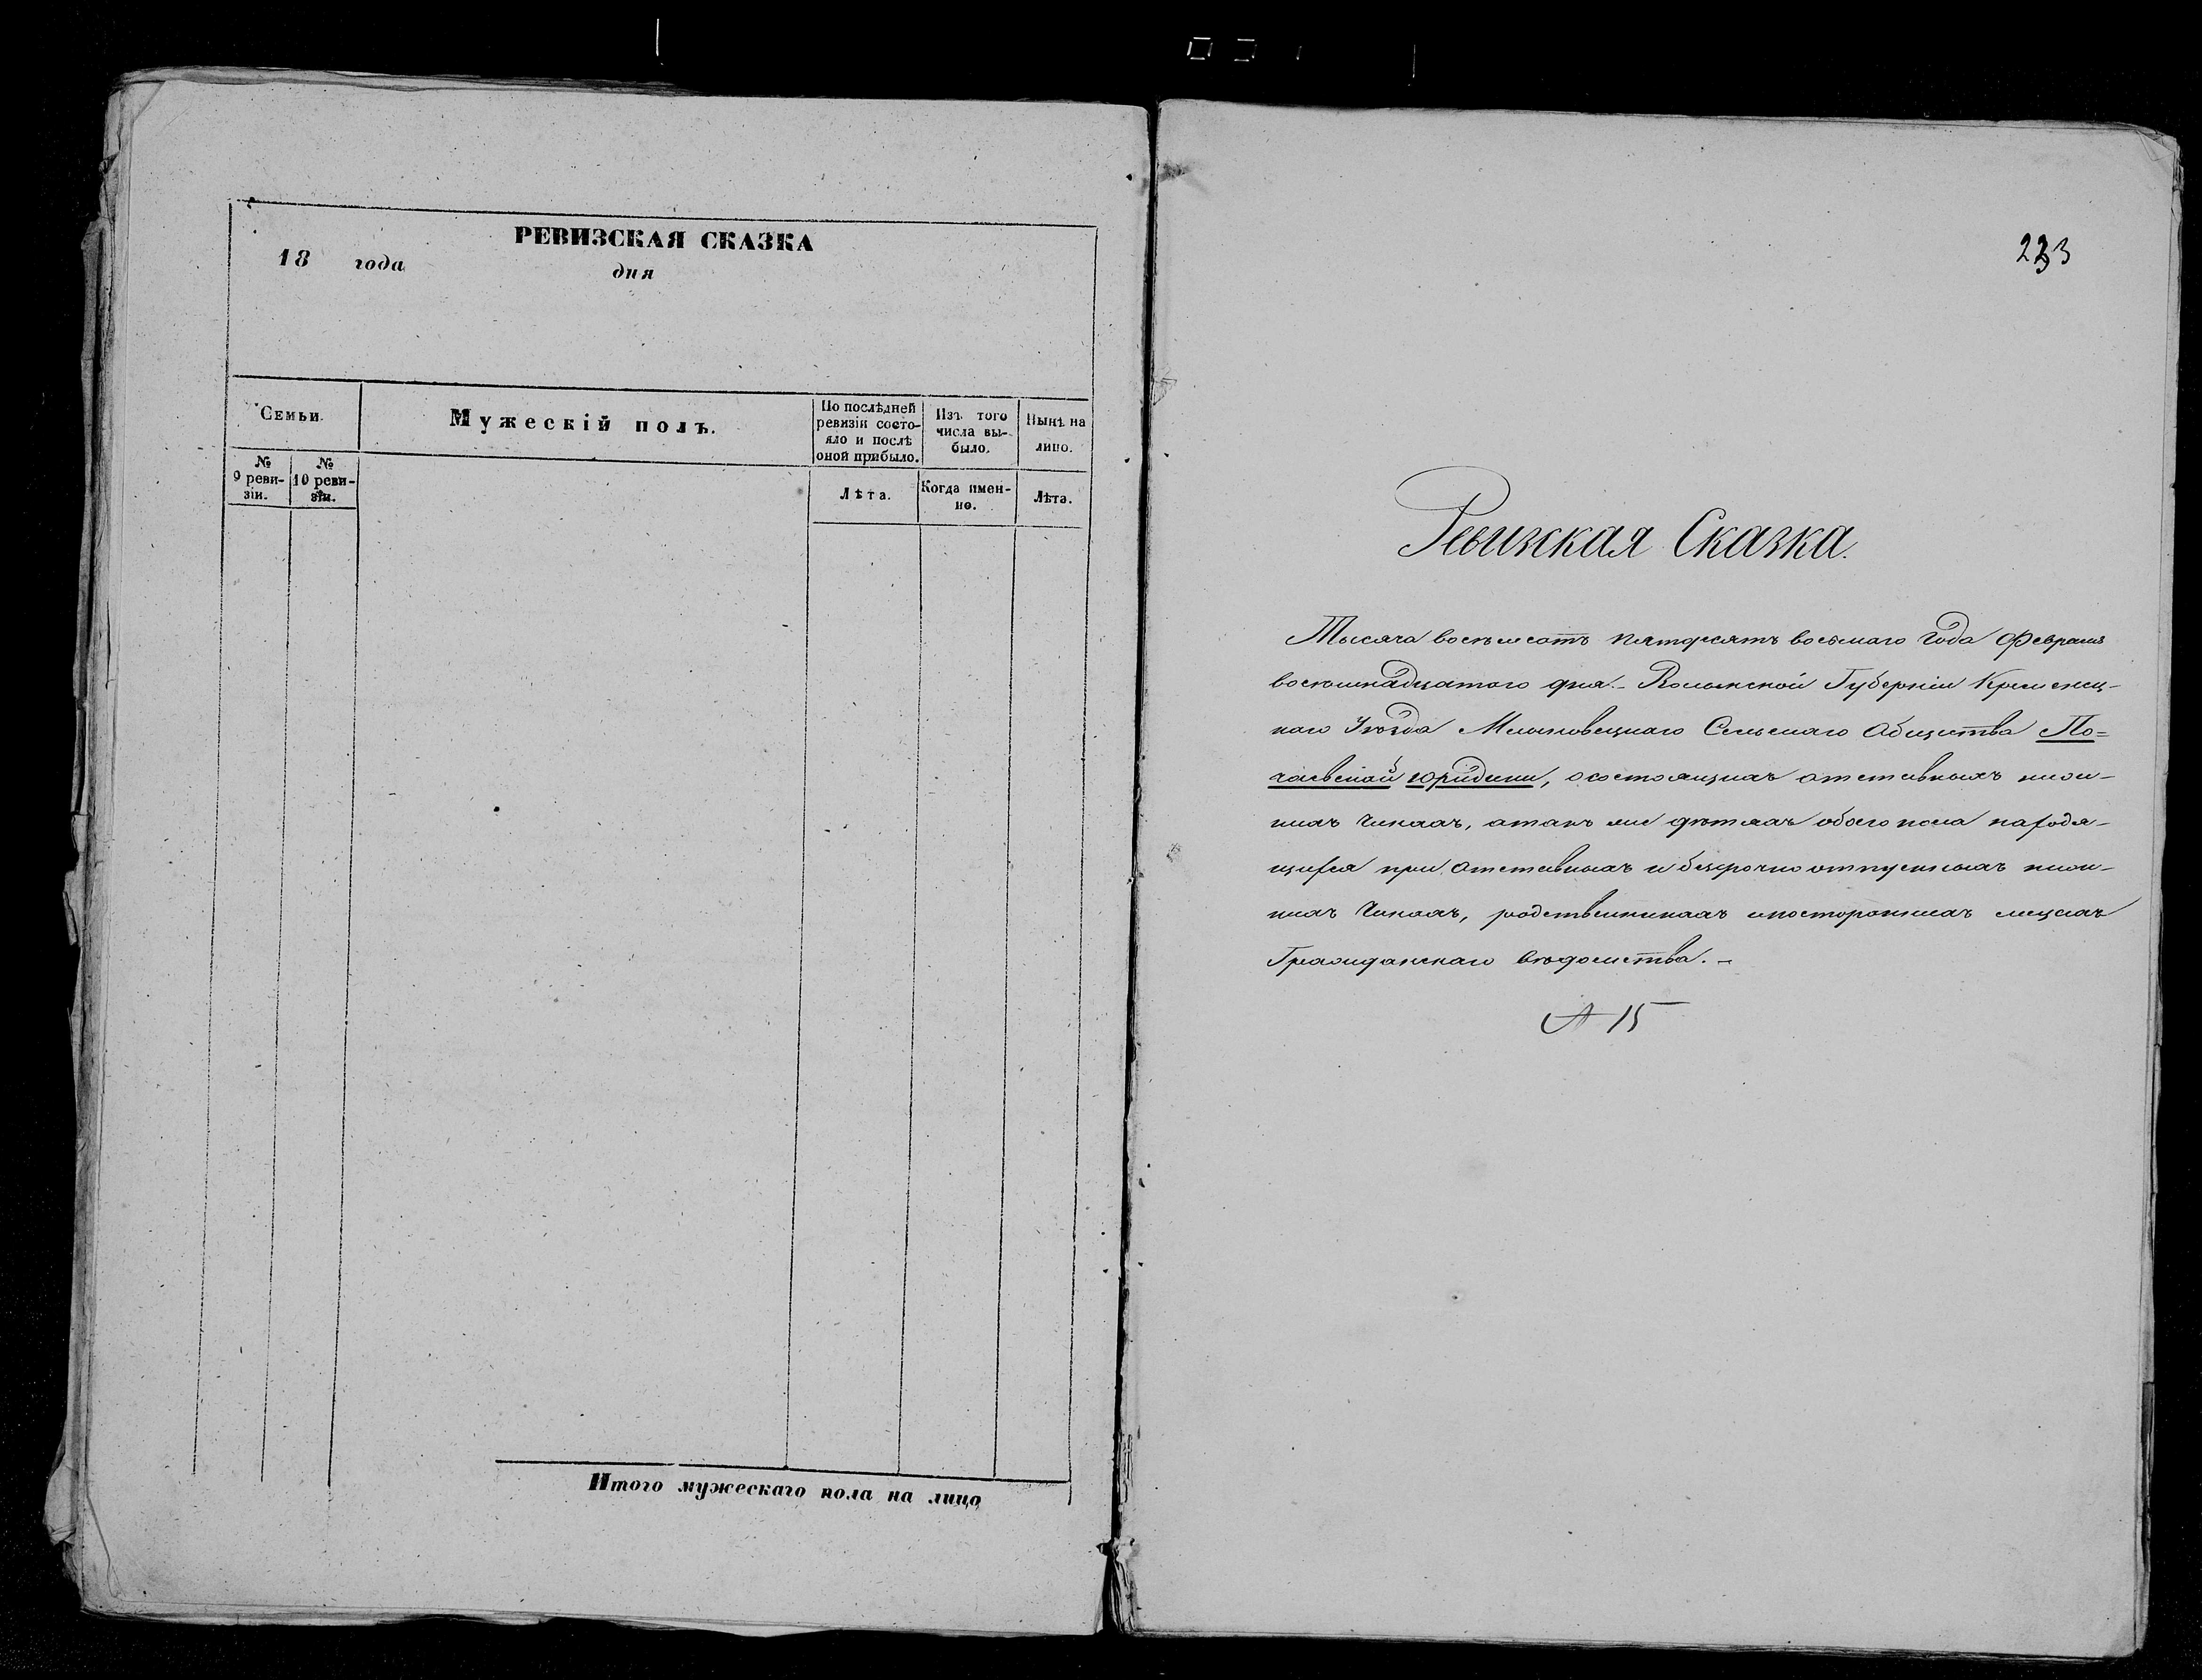 РЕВИЗСКАЯ СКАЗКА
18 года дня
Семьи.
Мужескій полъ.
По послѣдней ревизіи состо-
яло и послѣ
оной прибыло.
Изъ того
числа вы-
было.
Нынѣ на
лицо.
№
9 реви-
зіи.
№
10 реви-
зіи.
Лѣта.
Когда имен-
но.
Лѣта.
Итого мужескаго пола на лицо
223
Ревизкая Сказка.
Тысяча восемьсотъ пятдесятъ восьмаго Года Февраля
восемьнадцатого дня. Волынской Губерніи Кременец-
каго Уѣзда Мельновецкаго Сельскаго Общества По=
чаевской юридики, о состоящихъ отставныхъ ниж-
нихъ Чинахъ, а такъ же дѣтяхъ обоего пола народя-
щихся при отставныхъ и безсрочно отпускныхъ ниж-
нихъ Чинахъ, родственникахъ и постороннихъ лицахъ
Гражданскаго вѣдомства.
15